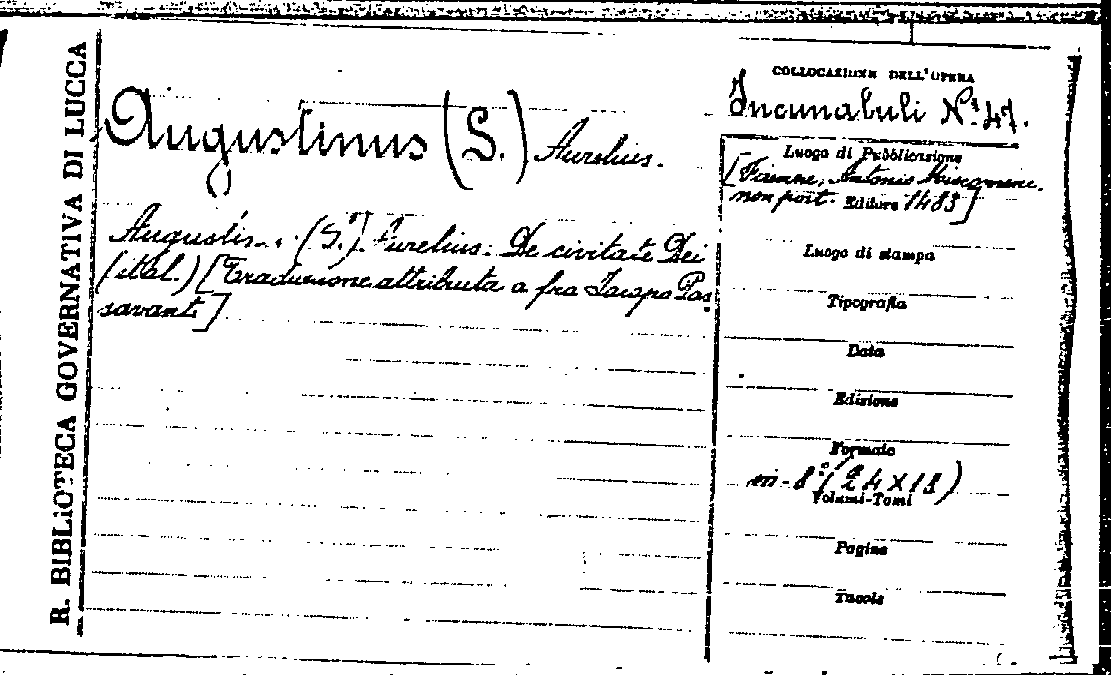 R. BIBLIOTECA GOVERNATIVA DI LUCCA
Augustinus (S.) Aurelius.
Augustin.. (S.) Aurelius: De civitate Dei
(ital.) [Traduzione attribuita a fra Jacopo Pas
savanti]
COLLOCAZIONE DELL'OPERA
Incunabuli N.º 47.
Luogo di Pubblicazione
[Firenze, Antonio Miscomini,
non post. Editore 1483]
Luogo di stampa
Tipografia
Data
Edizione
Formato
in-8º (24×18)
Volumi-Tomi
Pagine
Tavole